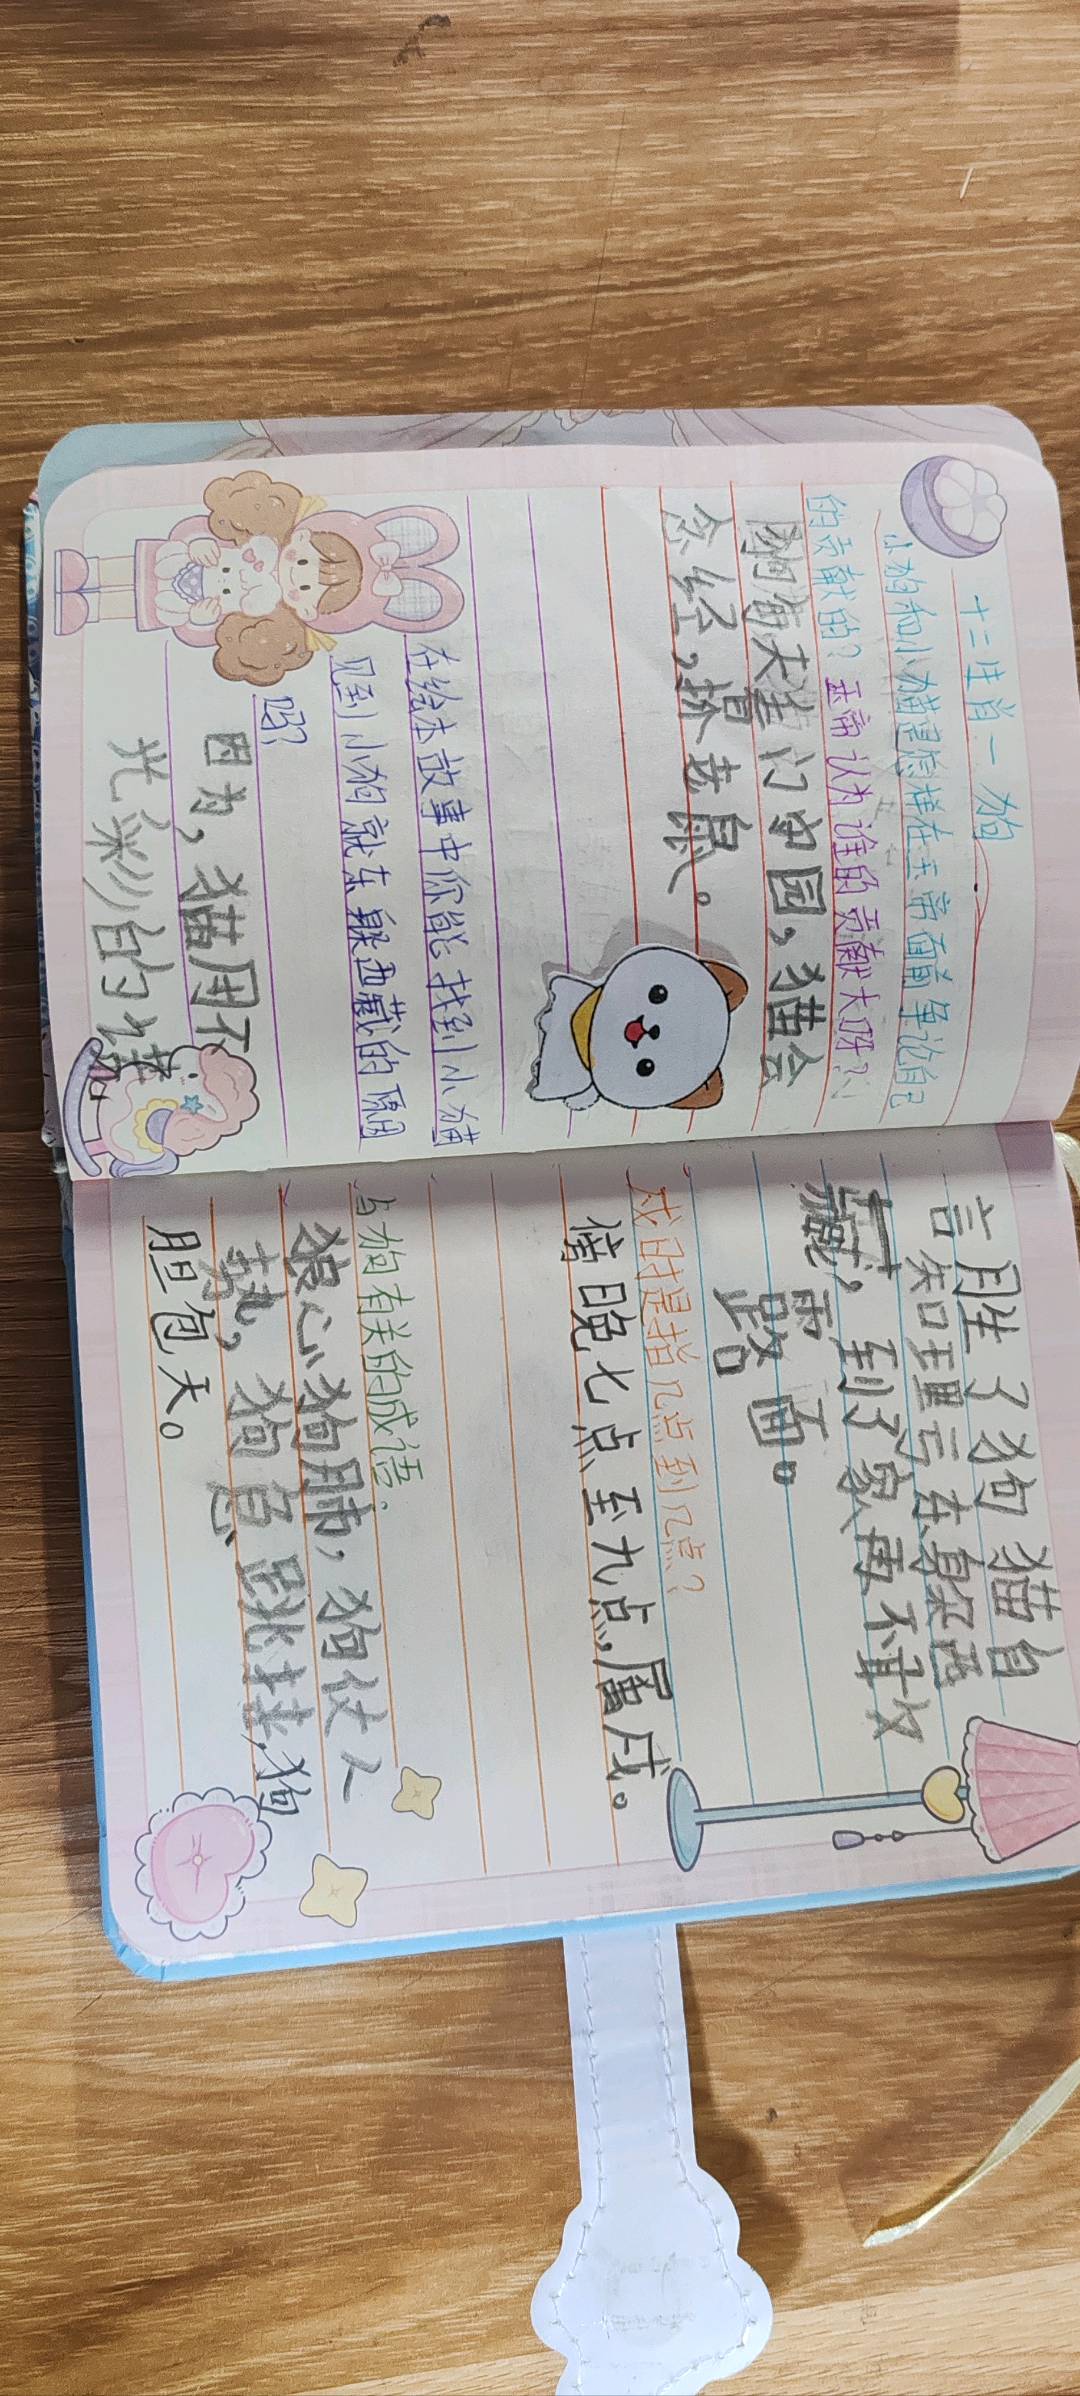 十二生肖一狗
小狗和小猫是怎样在玉帝面前争论自己
的贡献的？玉帝认为谁的贡献大呀？
狗每天看门守园，猫会
念经，捉老鼠。
在绘本故事中你能找到小猫
见到小狗就东躲西藏的原因
吗？
因为，猫用不
光彩的
言月生了狗 猫自
知理亏东躲西
藏，到了家再不敢
露面。
戌时是指几点到几点？
傍晚七点至九点，属戌。
与狗有关的成语：
狼心狗肺，狗仗人
势，狗急跳墙，狗
胆包天。